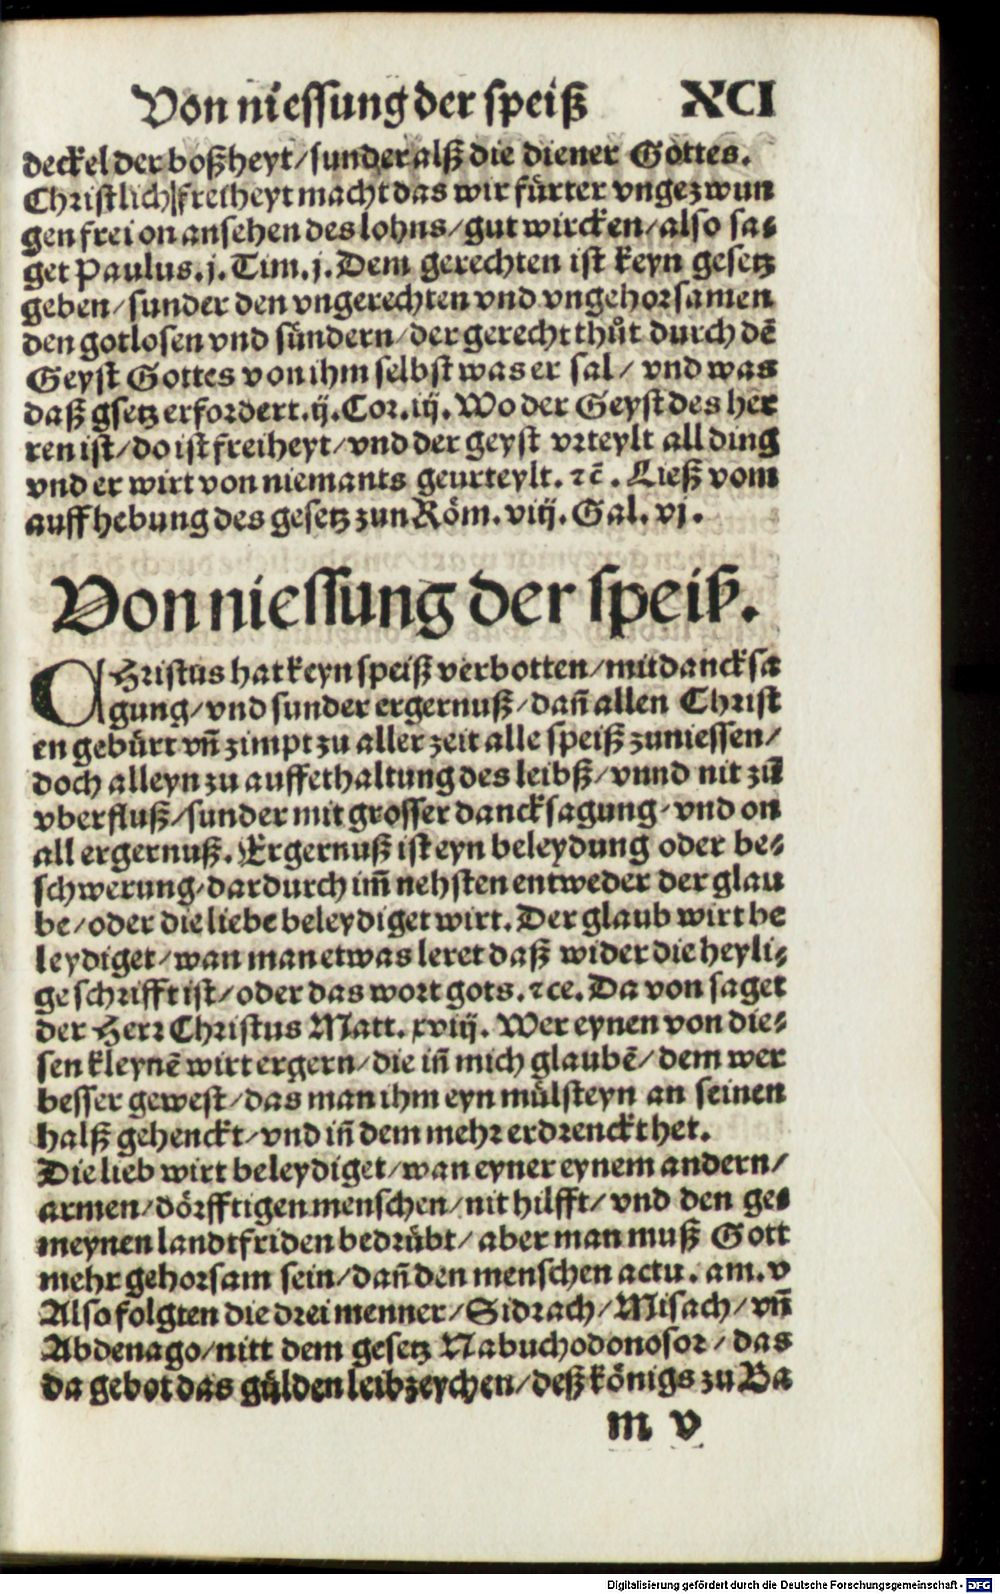 Von niessung der speiß XCI
deckel der boßheyt/sunder alß die diener Gottes.
Christlich freiheyt macht das wir fürter vngezwun
gen frei on ansehen des lohns/gut wircken/also sa⸗
get Paulus.j.Tim.j.Dem gerechten ist keyn gesetz
geben/sunder den vngerechten vnd vngehorsamen
den gotlosen vnd sündern/der gerecht thůt durch dē
Geyst Gottes von ihm selbst was er sal/ vnd was
daß gsetz erfordert.ij.Cor.iij.Wo der Geyst des her
ren ist/do ist freiheyt/vnd der geyst vrteylt all ding
vnd er wirt von niemants geurteylt.ꝛc̄. Ließ vom
auffhebung des gesetz zun Röm.viij.Gal.vj.
Von niessung der speiß.
CHristus hat keyn speiß verbotten/mit dancksa
gung/vnd sunder ergernuß/dañ allen Christ
en gebürt vñ zimpt zu aller zeit alle speiß zuniessen/
doch alleyn zu auffethaltung des leibß/vnnd nit zū
vberfluß/sunder mit grosser dancksagung/vnd on
all ergernuß.Ergernuß ist eyn beleydung oder be⸗
schwerung/dardurch im̄ nehsten entweder der glau
be/oder die liebe beleydiget wirt.Der glaub wirt be
leydiget/wan man etwas leret daß wider die heyli⸗
ge schrifft ist/oder das wort gots.ꝛce.Da von saget
der Herr Christus Matt.xviij. Wer eynen von die⸗
sen kleynē wirt ergern/die in̄ mich glaubē/dem wer
besser gewest/das man ihm eyn mülsteyn an seinen
halß gehenckt/vnd in̄ dem mehr erdrenckt het.
Die lieb wirt beleydiget/wan eyner eynem andern/
armen/dörfftigen menschen/nit hilfft/vnd den ge⸗
meynen landtfriden bedrübt/aber man muß Gott
mehr gehorsam sein/dañ den menschen actu.am.v
Also folgten die drei menner/Sidrach/Misach/vñ
Abdenago/nitt dem gesetz Nabuchodonosor/das
da gebot das gülden leibzeychen/deß königs zu Ba
m v
Digitalisierung gefördert durch die Deutsche Forschungsgemeinschaft - DFG